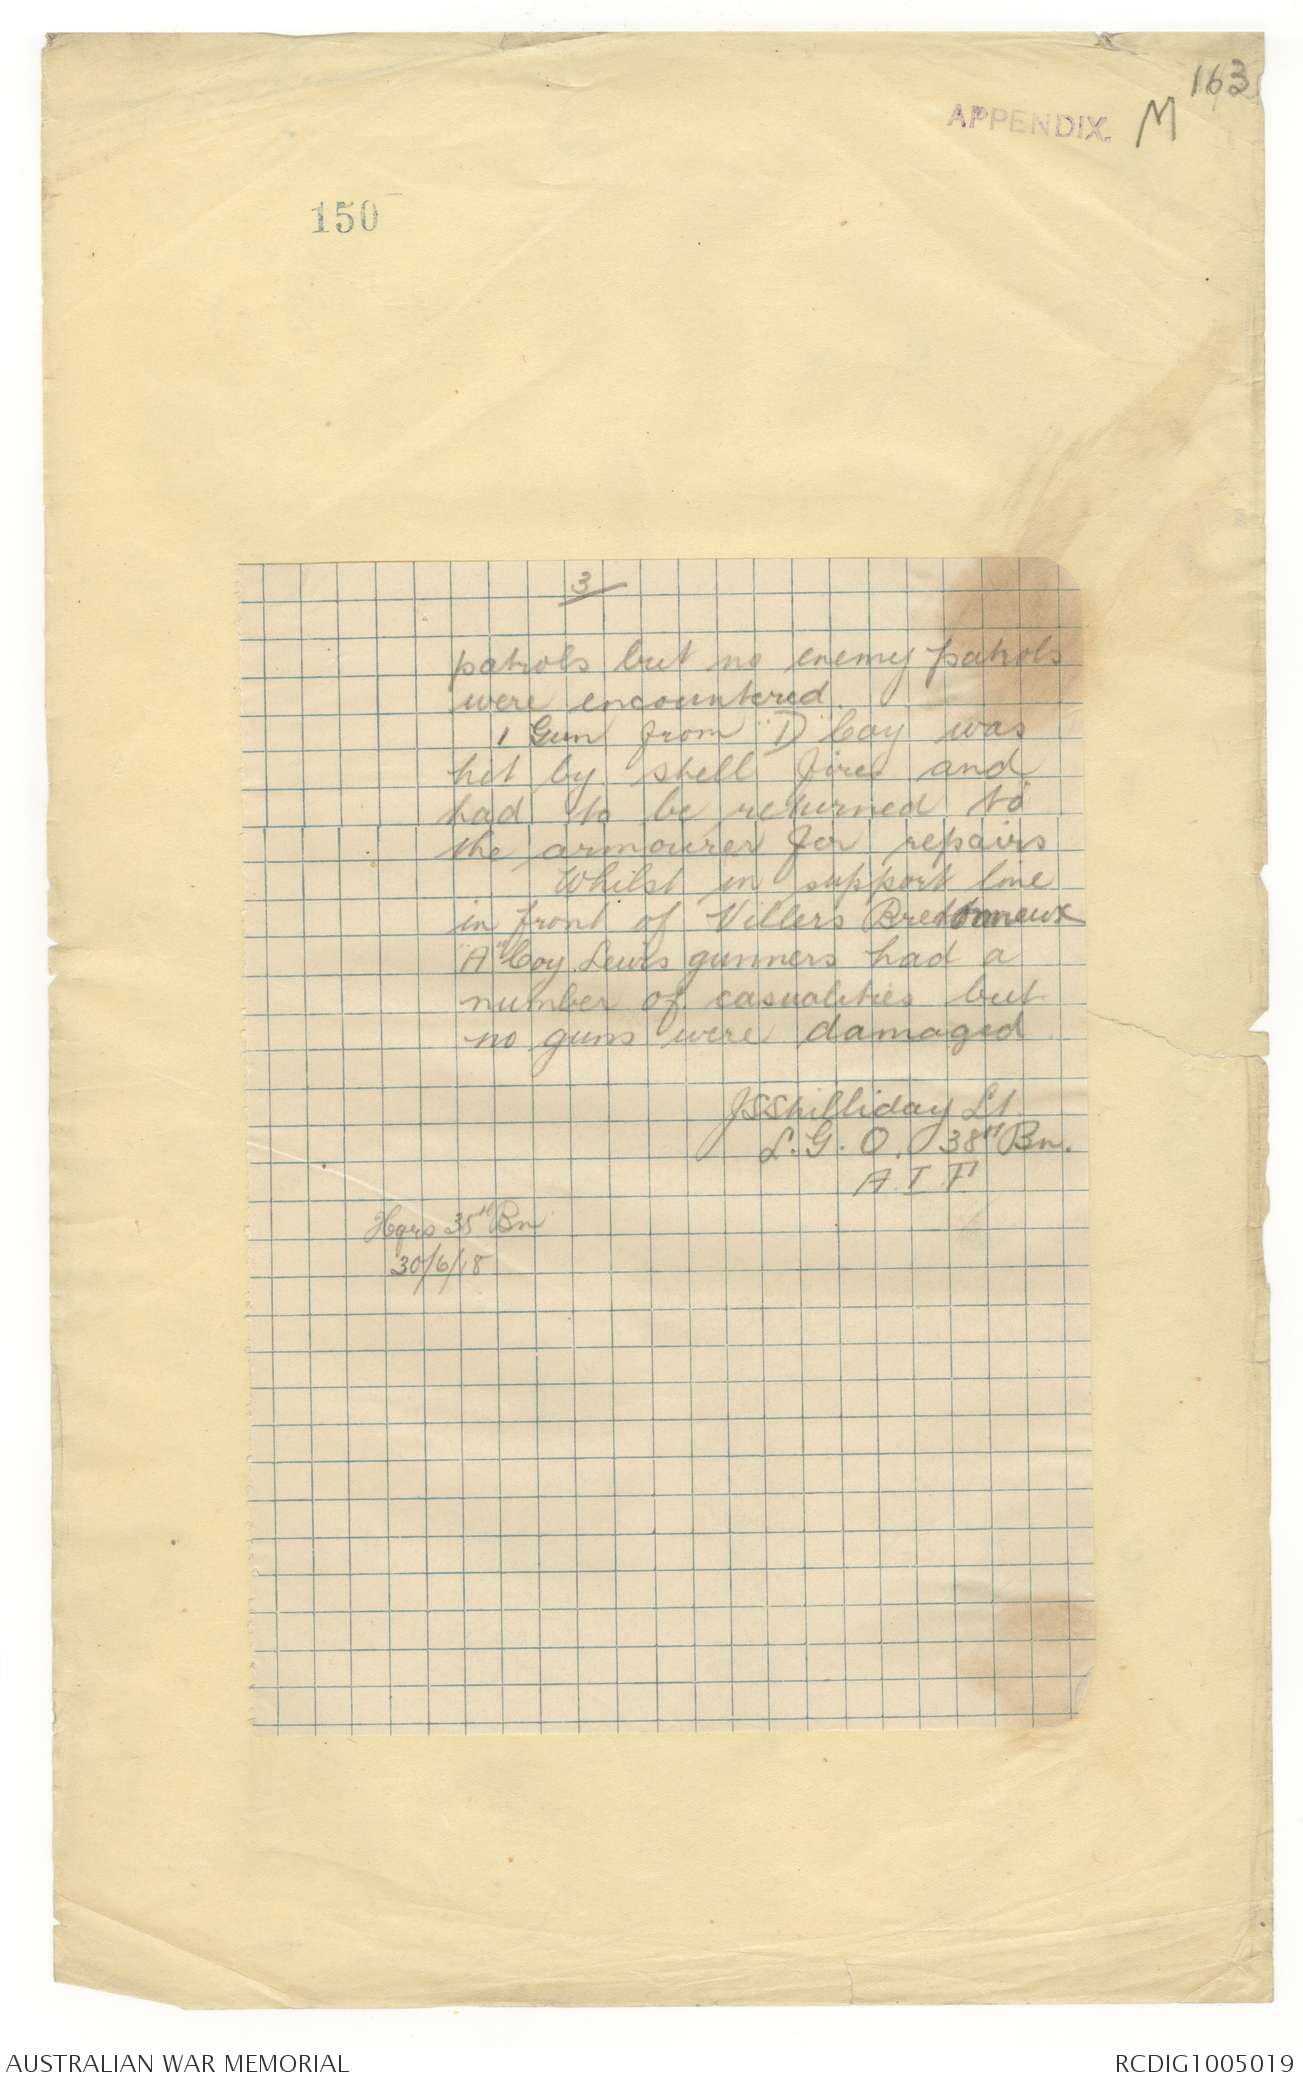 163
APPENDIX. M
150
3
patrols but no enemy patrols
were encountered.
1 Gun from "D" Coy was
hit by shell fire and
had to be returned to
the armourer for repairs
Whilst in support line
in front of Villers Bretonneux
"A" Coy Lewis gunners had a
number of casualities but
no guns were damaged.
JSShilliday Lt.
L.G.O. 38th Bn.
A.I.F.
Hqrs 35th Bn
30/6/18
AUSTRALIAN WAR MEMORIAL
RCDIG1005019